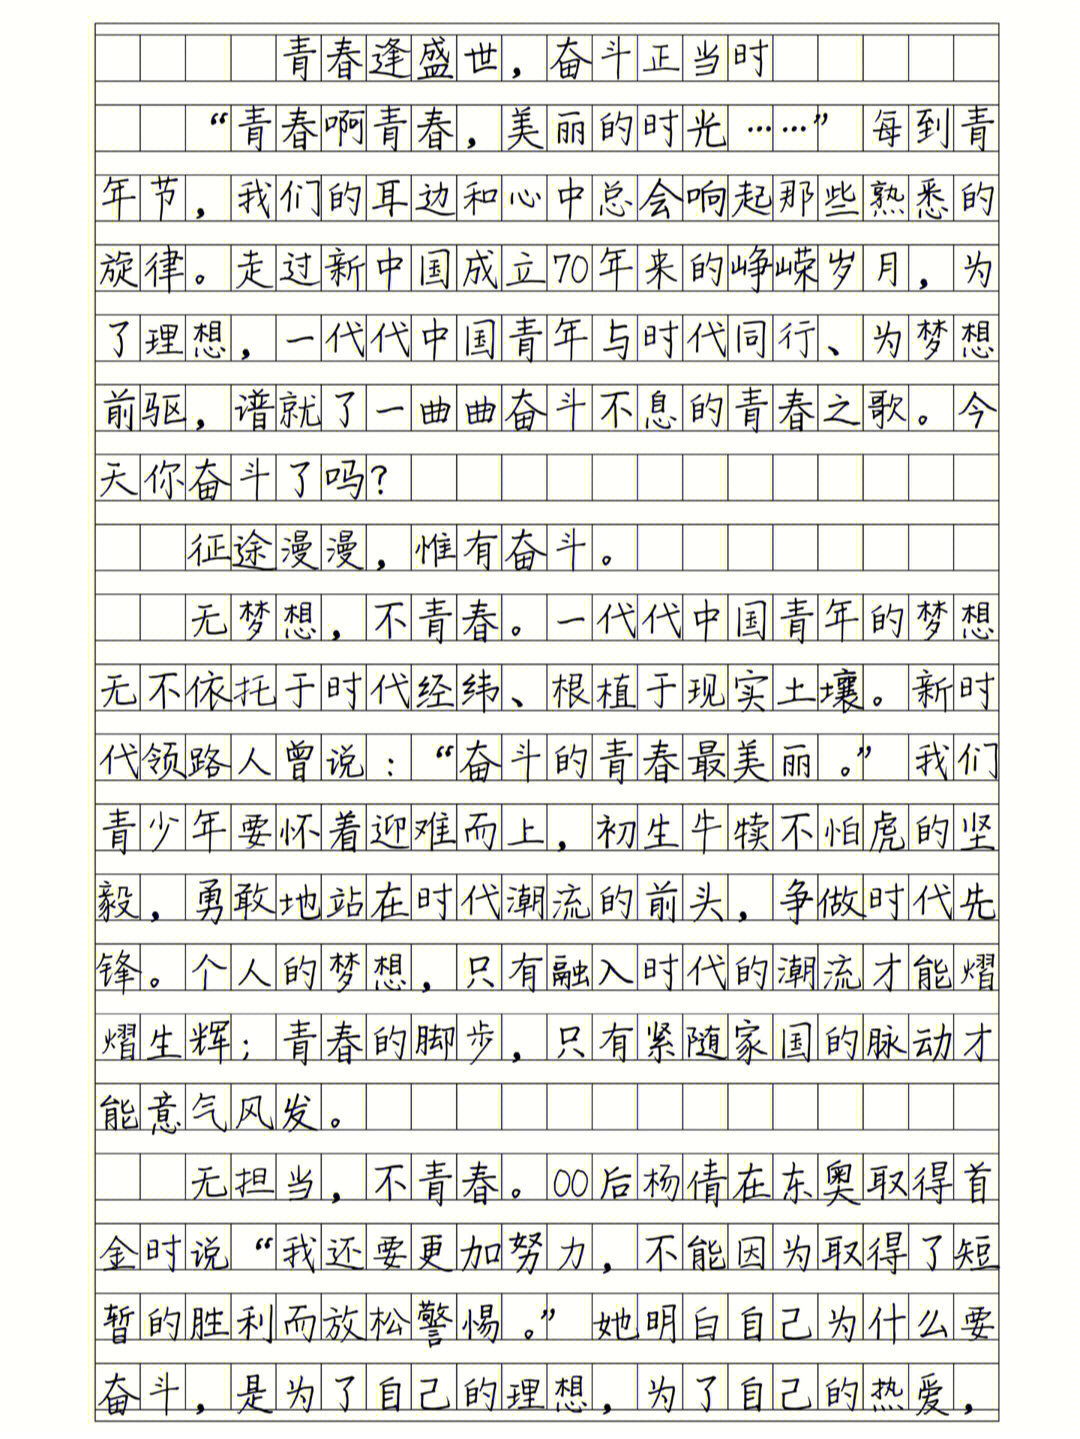 青春逢盛世，奋斗正当时
“青春啊青春，美丽的时光……”每到青
年节，我们的耳边和心中总会响起那些熟悉的
旋律。走过新中国成立70年来的峥嵘岁月，为
了理想，一代代中国青年与时代同行、为梦想
前驱，谱就了一曲曲奋斗不息的青春之歌。今
天你奋斗了吗？
征途漫漫，惟有奋斗。
无梦想，不青春。一代代中国青年的梦想
无不依托于时代经纬、根植于现实土壤。新时
代领路人曾说：“奋斗的青春最美丽。”我们
青少年要怀着迎难而上，初生牛犊不怕虎的坚
毅，勇敢地站在时代潮流的前头，争做时代先
锋。个人的梦想，只有融入时代的潮流才能熠
熠生辉；青春的脚步，只有紧随家国的脉动才
能意气风发。
无担当，不青春。00后杨倩在东奥取得首
金时说“我还要更加努力，不能因为取得了短
暂的胜利而放松警惕。”她明白自己为什么要
奋斗，是为了自己的理想，为了自己的热爱，